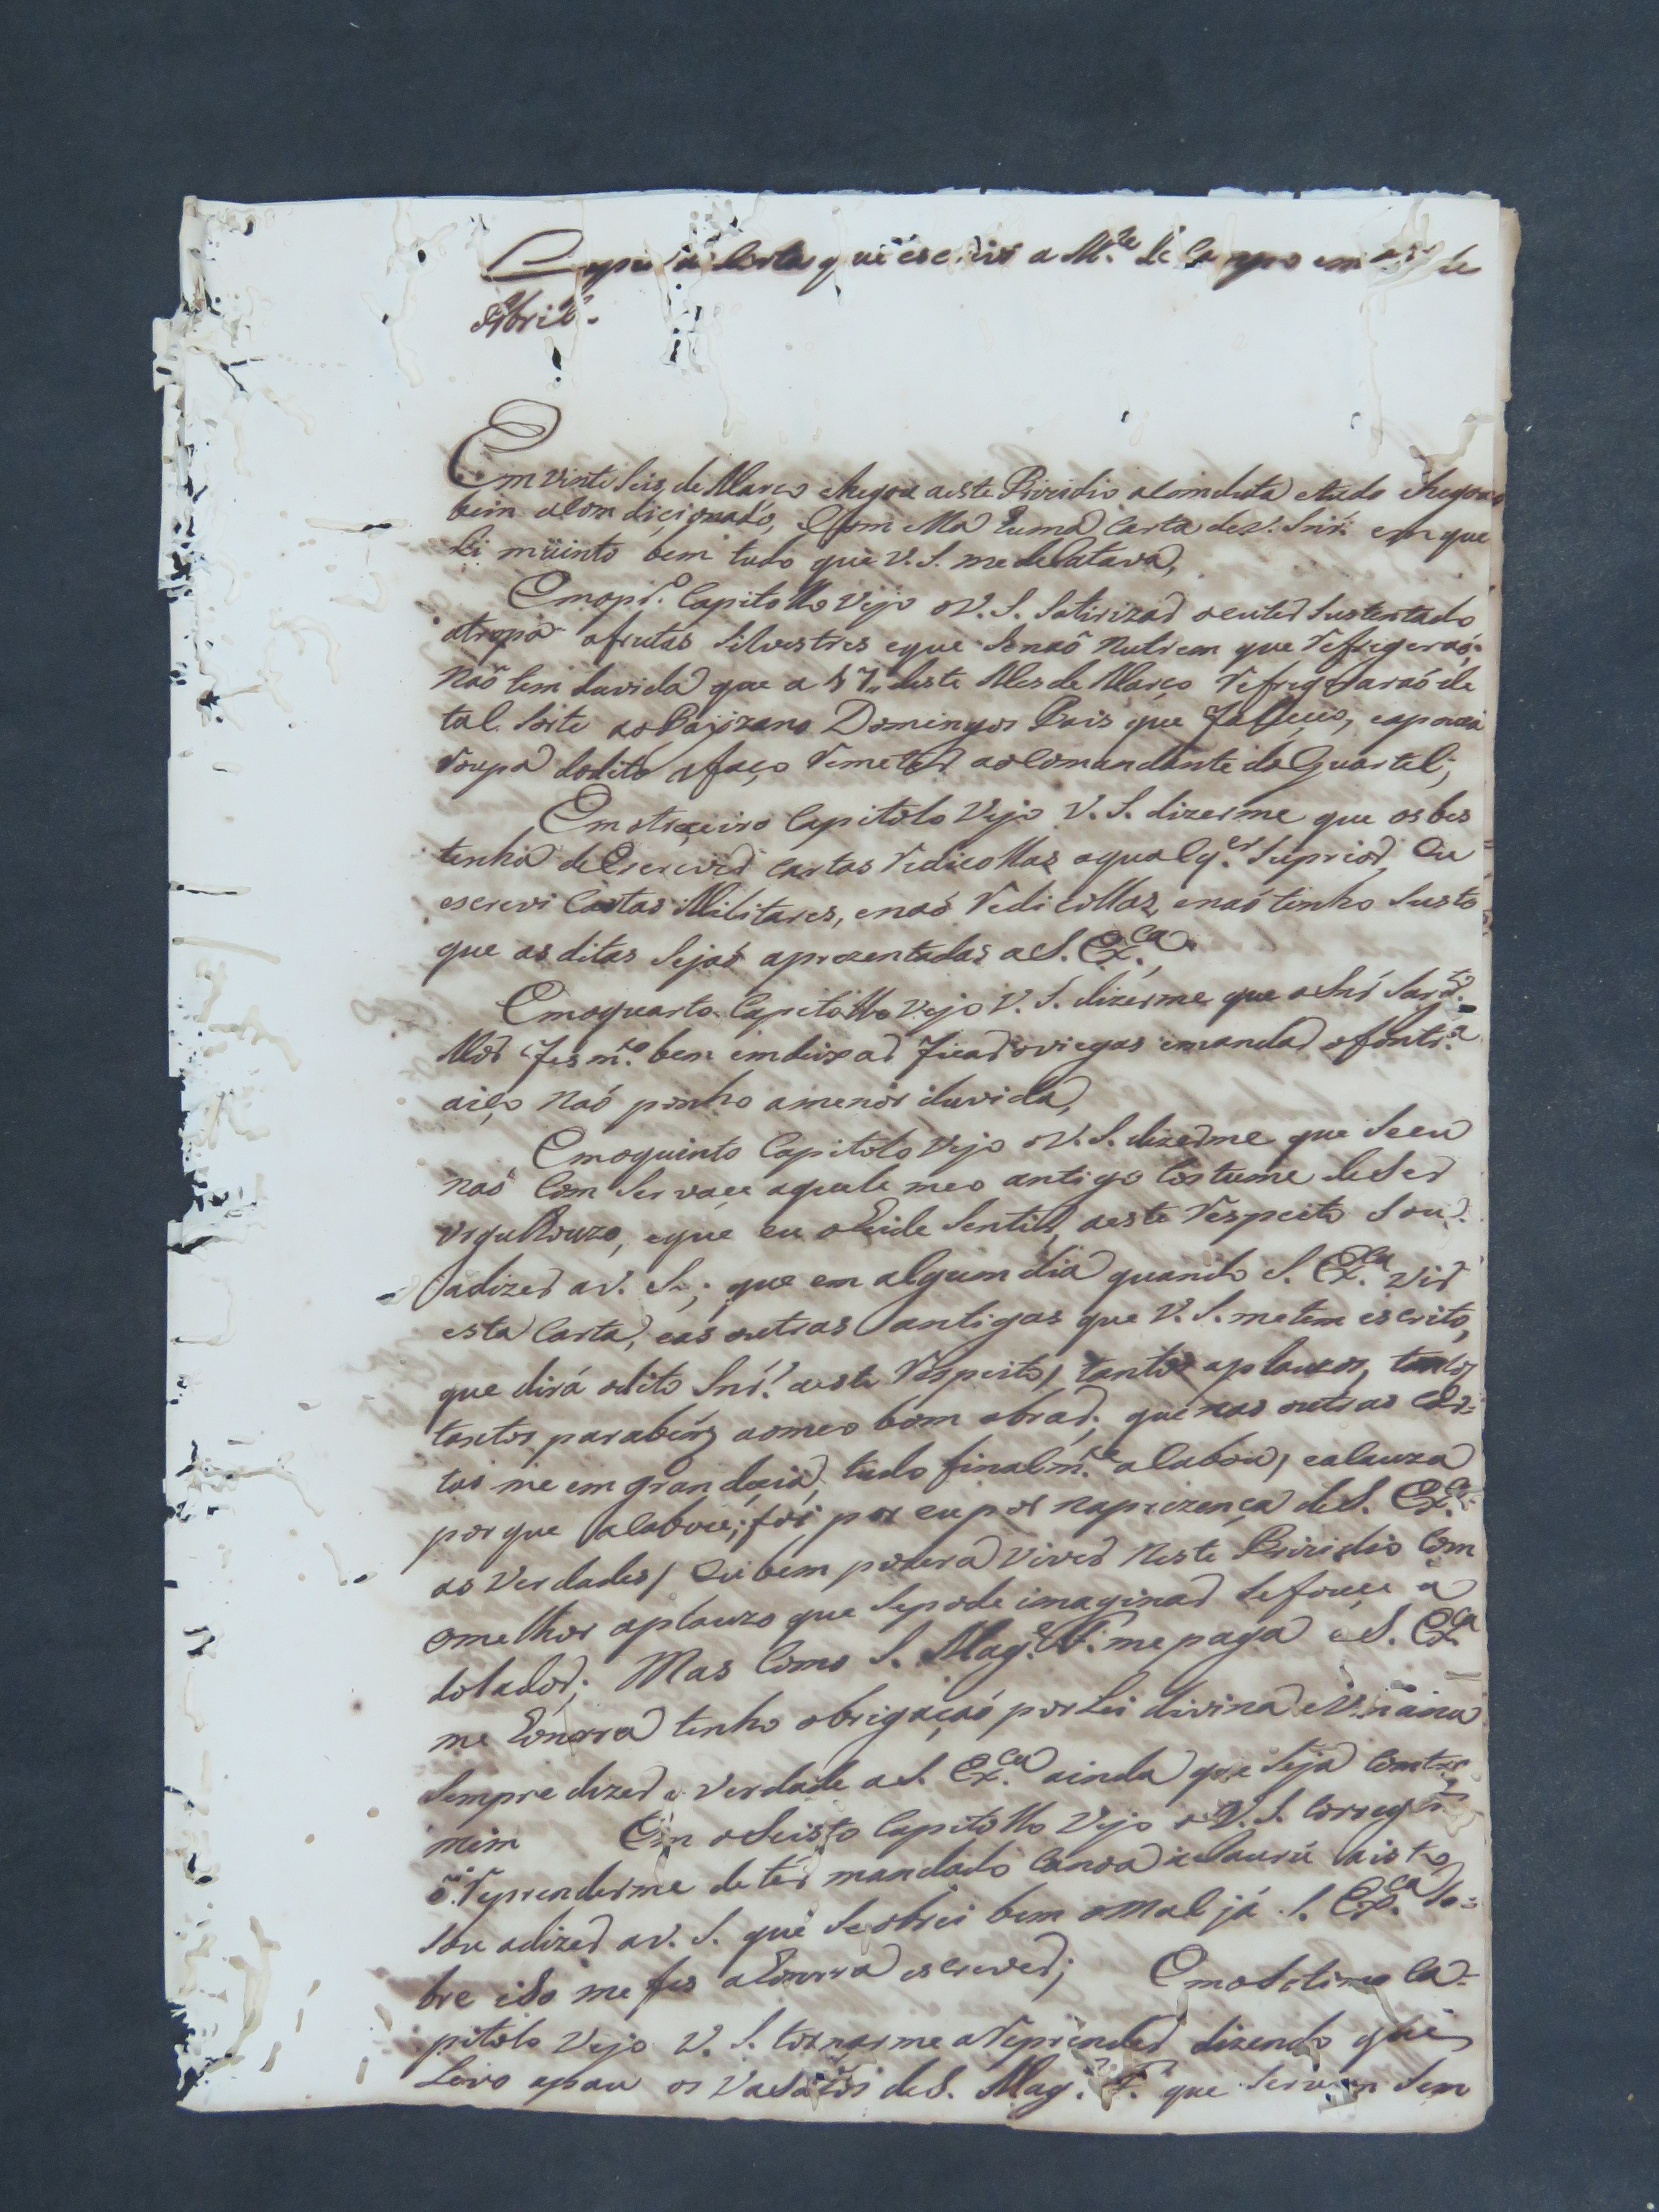 Copia da Carta que escrivi a M.e de Campo em de
Abril.
Em vinte seis de Março chegou aeste Prizidio a Comduta etudo chegou
bem a Com diçionado, Com ella huma Carta dev. Snr.ª em que
Li müinto bem tudo que V. S. me delatava,
Em opr.º Capitollo vejo oV. S. Satirizar oeuter Sustentado
atropa afrutas Silvestres eque Senaõ Nutrem que Refrigeraó:
Naõ tem duvida que a 17,, deste Mes de Março Refrigeraraó de
tal Sorte aoPaizano Domingos Pais que faleçeo, eapouca
Roupa dodito afaço Remeter aoComandante do Quartel;
Em otreçeiro Capitolo Vejo V. S. dizerme que os bes
tenha deEscrever Cartas Redicollas aqualq.er Suprior, Eu
escrevi Cartas Militares, enaó Redicollas, enaó tenho Susto
que as ditas Sejaó aprezentadas aS. Ex.ca
Emoquarto Capitollo Vejo V. S. dizerme que oSnr Sarg.to
Mór fes m.to bem emdeixar ficar oviegas emandar ofontr.a
aiço Naó ponho amenor duvida,
Emoquinto Capitolo Vejo oV. S. dizerme que Seeu
naõ Com Servaçe aquele meo antigo Costume deSer
orgulhouzo, eque eu oheide Sentir, aeste Respeito Sou
adizer av. S.; que em algum dia quando S. Ex.ca vir
esta Carta, eas outras antigas que V. S. metem escrito,
que dirá odito Snr.' aeste Respeito, tantos aplauzos, tantos
tantos parabéns aomeo bom obrar; que nas outras Car=
tas me em grandeçia, tudo finalm.te alaboia, ealauza
porque alabou; foi por eupor naprezença deS. Ex.ca
as Verdades, Eu bem podera Viver Neste Prizidio Com
omelhor aplauzo que Sepode imaginar Sefouçe a
dolador; Mas Como S. Mag.e F. me paga eS. Ex.ca
me honrra tenho obrigaçaó por Lei divina eUmana
Sempre dizer a Verdade aS. Ex.ca ainda que Seja Contra
mim Em oSeisto Capitollo Vejo oV. S.
Reprenderme de ter mandado Canoa aLaurú aisto
Sou adizer av. S. que Seobrei bem omal já S. Ex.ca So=
bre iso me fes ahonrra escrever; EmoSetimo Ca=
pitolo Vejo V. S. tornarme aReprender dizendo que
Levo apau os Vasalos deS. Mag.e F. que Servem Sem